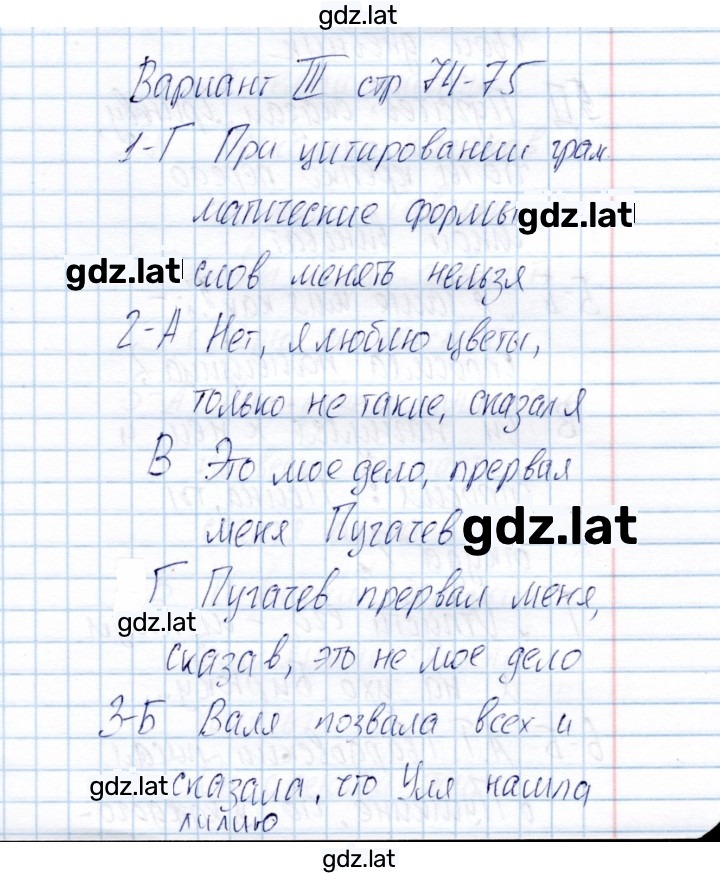 gdz.lat
Вариант III стр 74-75
1-Г При цитировании грам
матические формы gdz.lat
gdz.lat слов менять нельзя
2-А Нет, я люблю цветы,
только не такие, сказал я
В Это мое дело, прервал
меня Пугачев gdz.lat
Г Пугачев прервал меня,
gdz.lat
сказав, это не мое дело
3-Б Валя позвала всех и
gdz.lat сказала, что Уля нашла
лилию
gdz.lat